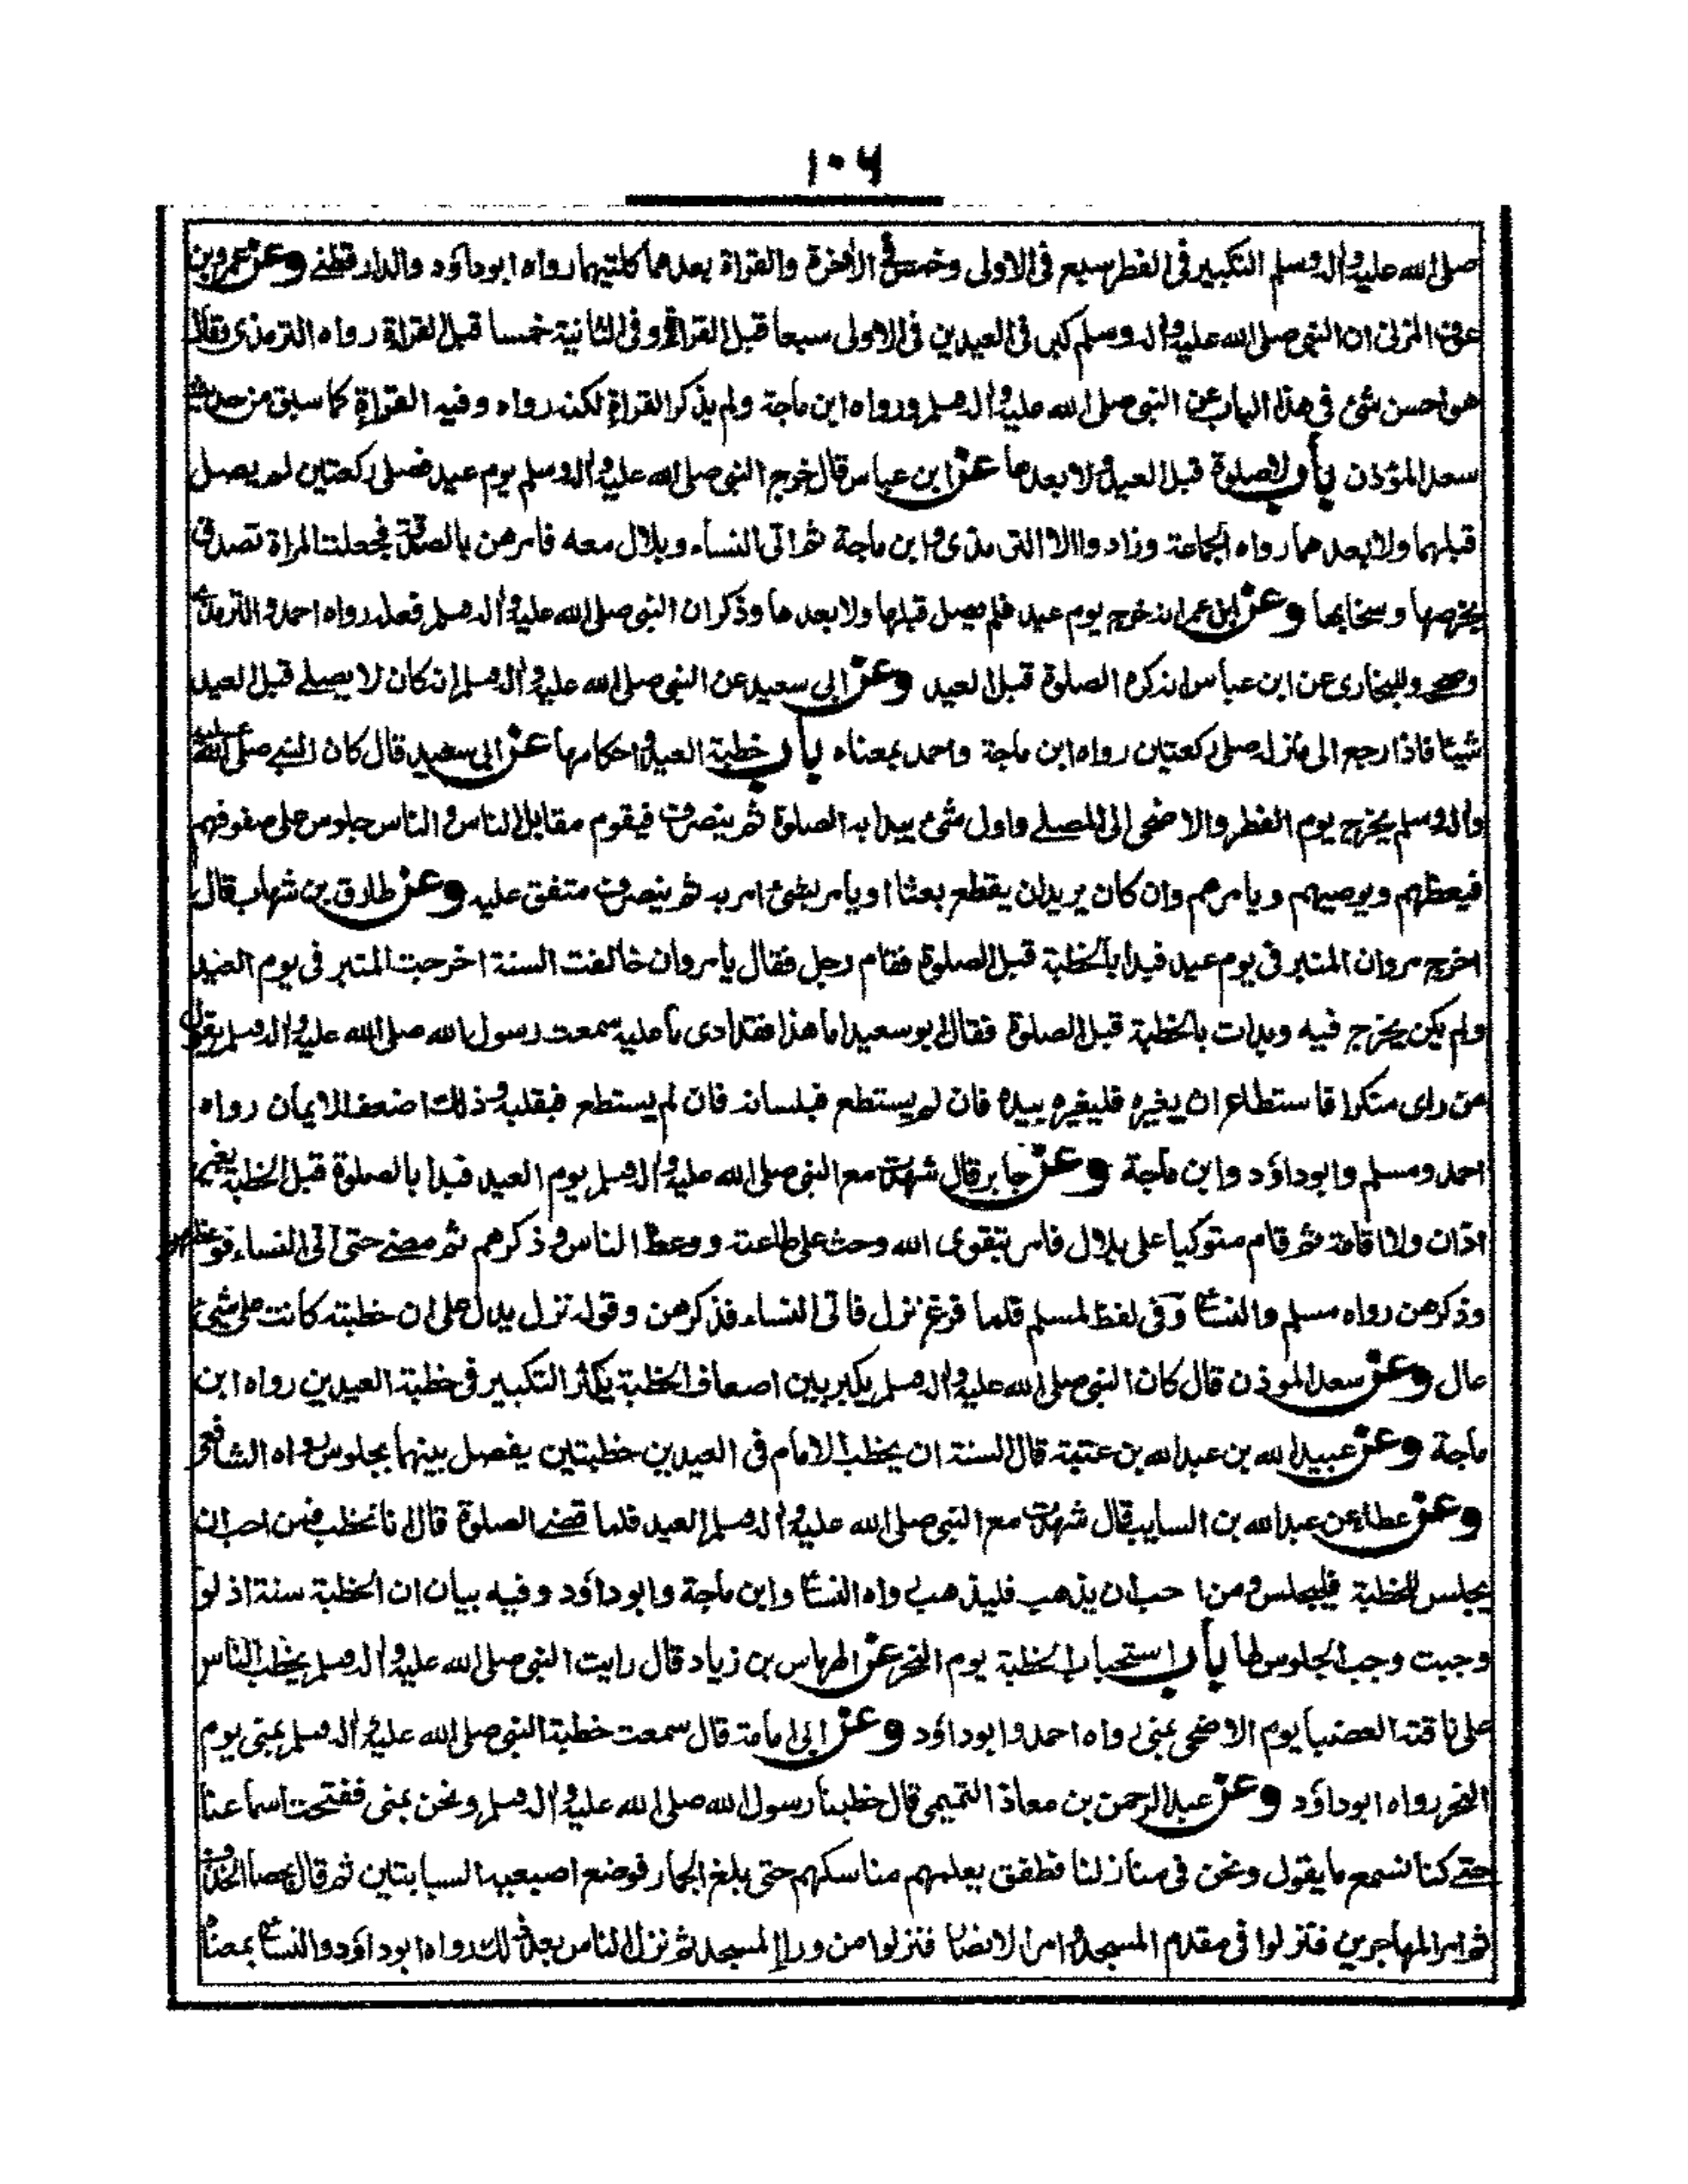 ١٠٦
صلى الله عليه واله وسلم التكبير فى الفطر سبع فى الاولى وخمس فى الاخرة والقراة بعدهما كلتيهما رواه ابوداؤد والدارقطنے وعن عمرو بن
عوف المزنى ان النبى صلى الله عليه واله وسلم كبر فى العيدين فى الاولى سبعا قبل القراة وفى الثانية خمسا قبل القراة رواه الترمذى وقال
هو احسن شئ فى هذا الباب عن النبى صلى الله عليه واله وسلم ورواه ابن ماجة ولم يذكر القراة لكنه رواه وفيه القراة كما سبق من حديث
سعد المؤذن باب لاصلوة قبل العيد ولا بعدها عن ابن عباس قال خرج النبى صلى الله عليه واله وسلم يوم عيد فصلى ركعتين لم يصل
قبلهما ولا بعدهما رواه الجماعة وزادوا الا الترمذى وابن ماجة ثم اتى النساء وبلال معه فامرهن بالصدقة فجعلت المراة تصدق
بخرصها وسخابها وعن ابن عمر انه خرج يوم عيد فلم يصل قبلها ولا بعدها وذكر ان النبى صلى الله عليه واله وسلم فعله رواه احمد والترمذى
وصححه وللبخارى عن ابن عباس انه كره الصلوة قبل العيد وعن ابى سعيد عن النبى صلى الله عليه واله وسلم انه كان لا يصلے قبل العيد
شيئا فاذا رجع الى منزله صلى ركعتين رواه ابن ماجة واحمد بمعناه باب خطبة العيد واحكامها عن ابى سعيد قال كان النبے صلى الله عليه
واله وسلم يخرج يوم الفطر والاضحى الى المصلے واول شئ يبدا به الصلوة ثم ينصرف فيقوم مقابل الناس والناس جلوس على صفوفهم
فيعظهم ويوصيهم ويامرهم وان كان يريد ان يقطع بعثا او يامر بشئ امر به ثم ينصرف متفق عليه وعن طارق بن شهاب قال
اخرج مروان المنبر فى يوم عيد فبدا بالخطبة قبل الصلوة فقام رجل فقال يا مروان خالفت السنة اخرجت المنبر فى يوم العيد
ولم يكن يخرج فيه وبدات بالخطبة قبل الصلوة فقال ابو سعيد اما هذا فقد ادى ما عليه سمعت رسول الله صلى الله عليه واله وسلم يقول
من راى منكرا فاستطاع ان يغيره فليغيره بيده فان لم يستطع فبلسانه فان لم يستطع فبقلبه وذلك اضعف الايمان رواه
احمد ومسلم وابوداؤد وابن ماجة وعن جابر قال شهدت مع النبى صلى الله عليه واله وسلم يوم العيد فبدا بالصلوة قبل الخطبة بغير
اذان ولا اقامة ثم قام متوكيا على بلال فامر بتقوى الله وحث على طاعته ووعظ الناس وذكرهم ثم مضے حتى اتى النساء فوعظهن
وذكرهن رواه مسلم والنسائى وفى لفظ لمسلم فلما فرغ نزل فاتى النساء فذكرهن وقوله نزل يدل على ان خطبته كانت على شئ
عال وعن سعد الموذن قال كان النبى صلى الله عليه واله وسلم يكبر بين اضعاف الخطبة يكثر التكبير فى خطبة العيدين رواه ابن
ماجة وعن عبيد الله بن عبد الله بن عتبة قال السنة ان يخطب الامام فى العيدين خطبتين يفصل بينهما بجلوس رواه الشافعى
وعن عطاء عن عبد الله بن السايب قال شهدت مع النبى صلى الله عليه واله وسلم العيد فلما قضے الصلوة قال انا نخطب فمن احب ان
يجلس للخطبة فليجلس ومن احب ان يذهب فليذهب رواه النسائى وابن ماجة وابوداؤد وفيه بيان ان الخطبة سنة اذ لو
وجبت وجب الجلوس لها باب استحباب الخطبة يوم النحر عن الهرماس بن زياد قال رايت النبى صلى الله عليه واله وسلم يخطب الناس
على ناقته العضبا يوم الاضحى بمنى رواه احمد وابوداؤد وعن ابى امامة قال سمعت خطبة النبى صلى الله عليه واله وسلم بمنى يوم
النحر رواه ابوداؤد وعن عبد الرحمن بن معاذ التميمى قال خطبنا رسول الله صلى الله عليه واله وسلم ونحن بمنى ففتحت اسماعنا
حتے كنا نسمع ما يقول ونحن فى منازلنا فطفق يعلمهم مناسكهم حتى بلغ الجمار فوضع اصبعيه السبابتين ثم قال بحصا الخذف
ثم امر المهاجرين فنزلوا فى مقدم المسجد وامر الانصار فنزلوا من ورا المسجد ثم نزل الناس بعد ذلك رواه ابوداؤد والنسائى بمعناه